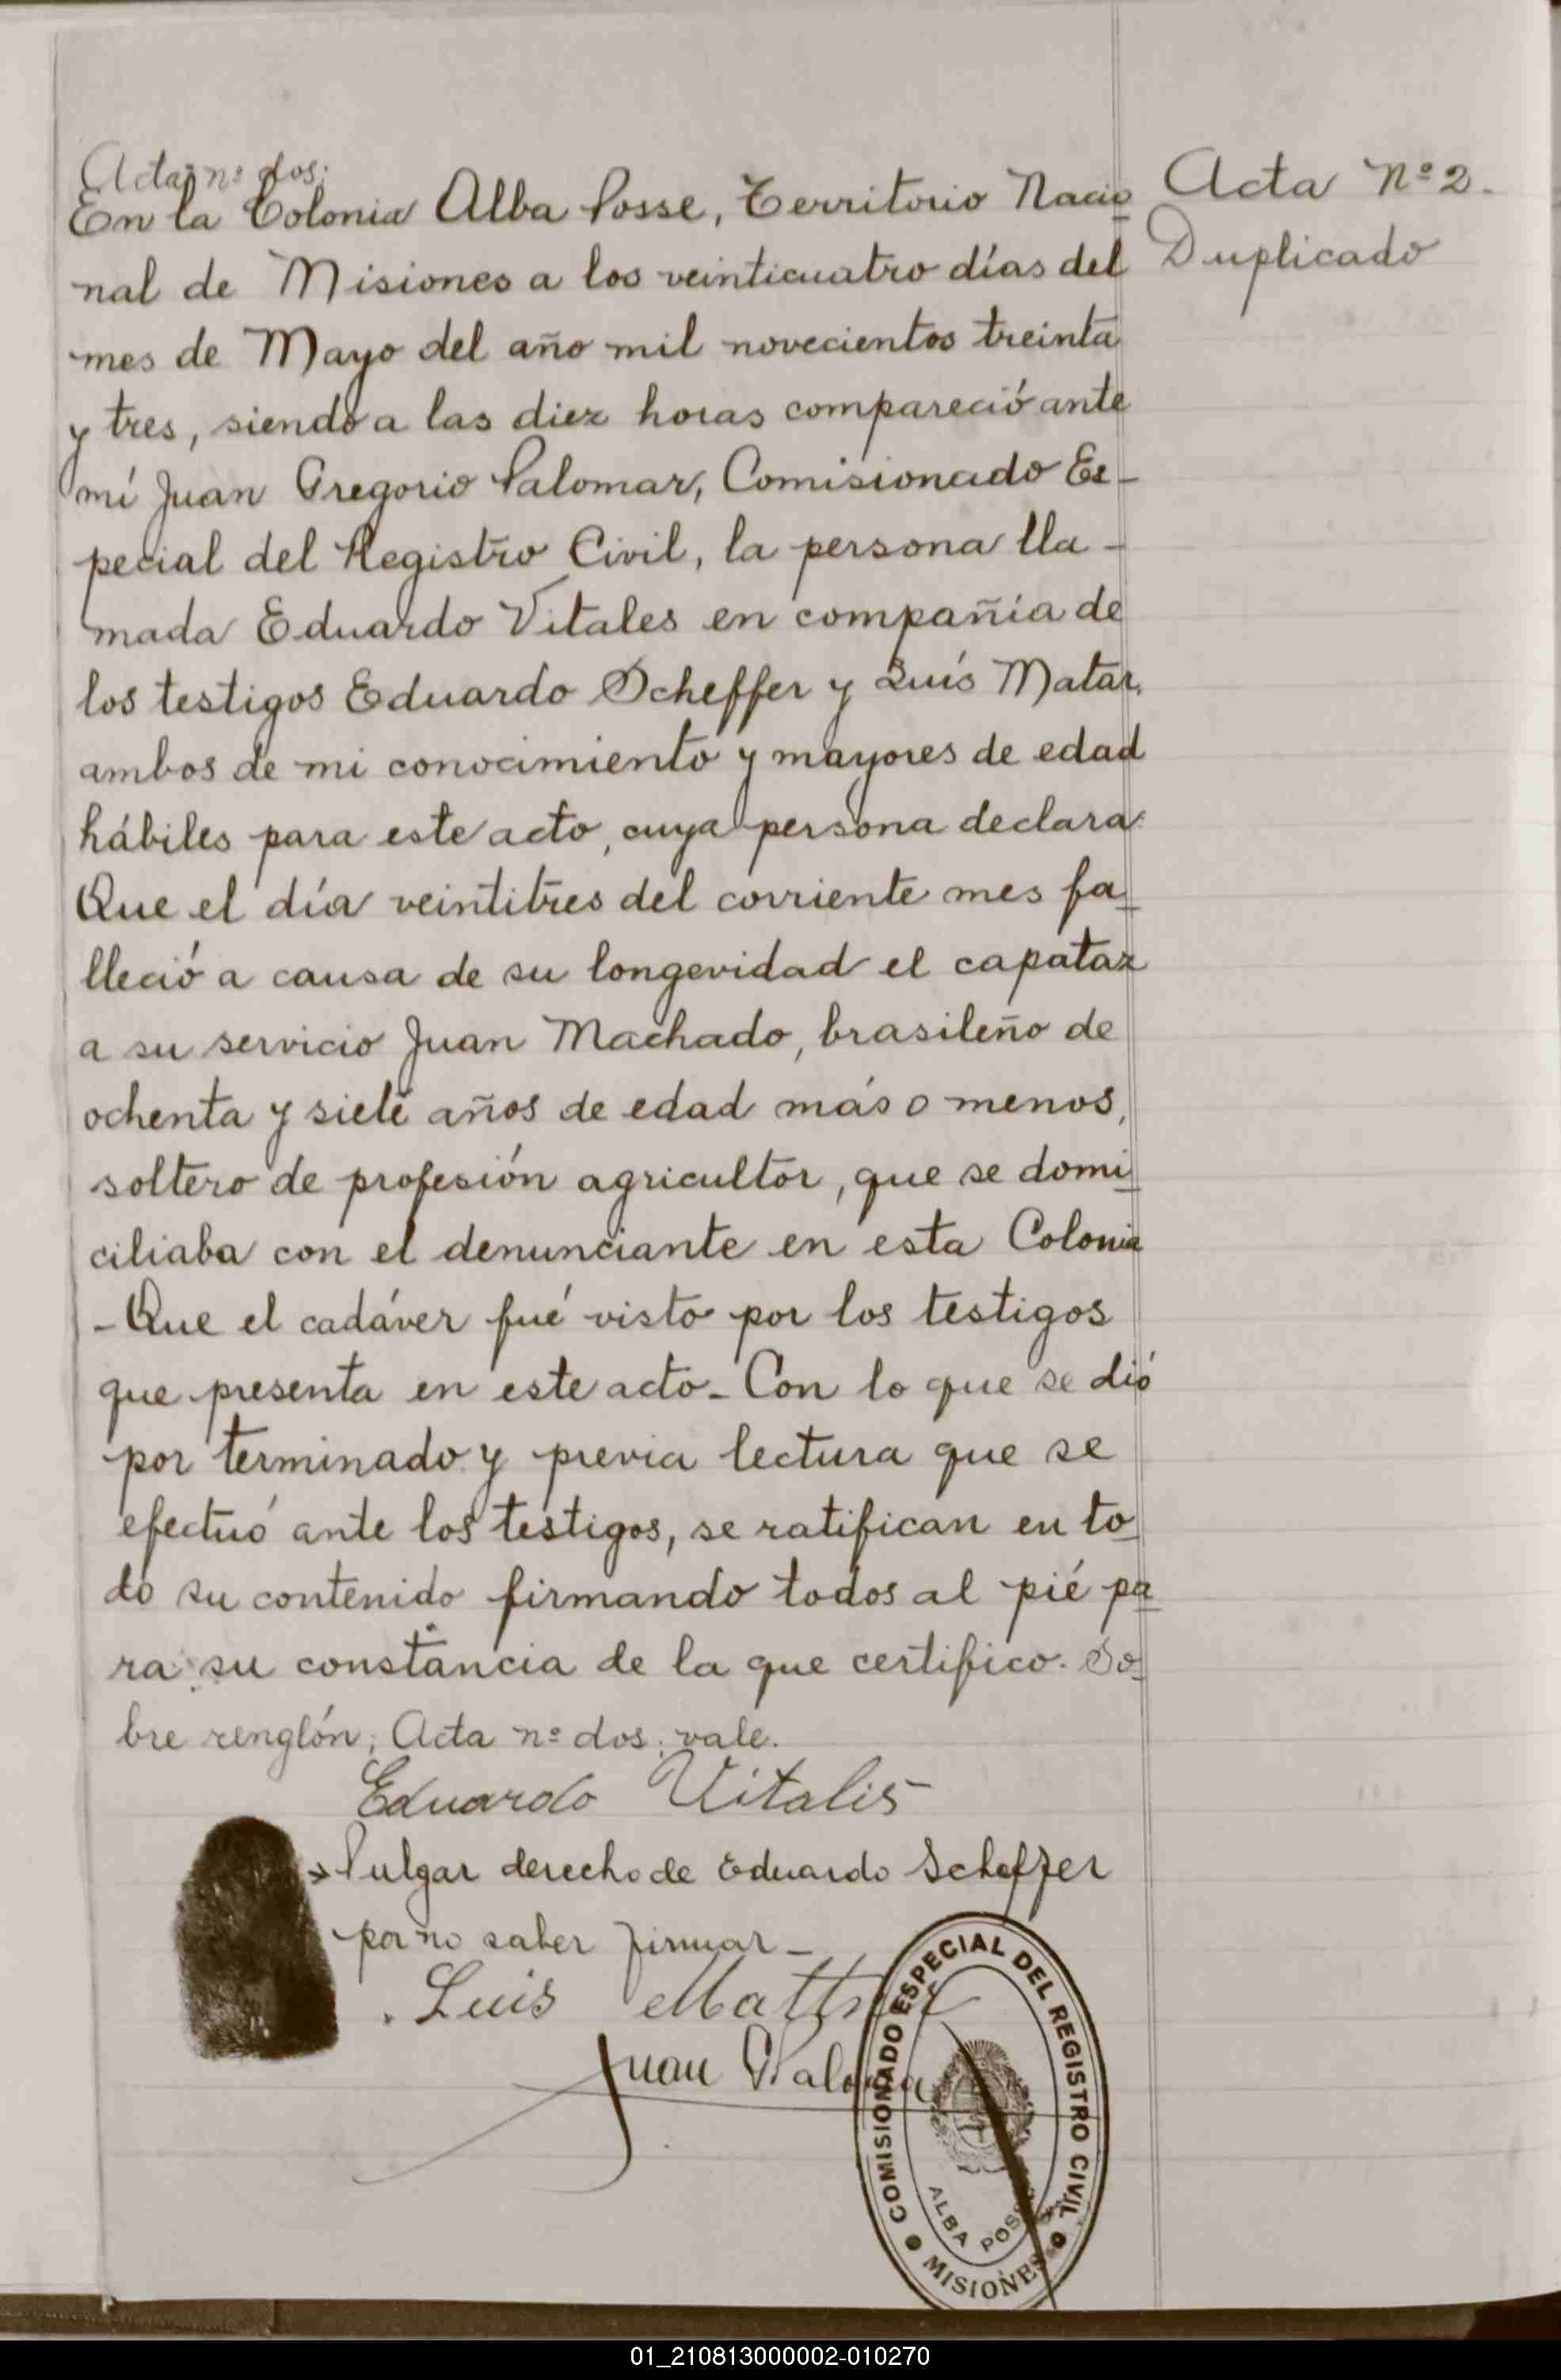 Acta nº dos;
En la Colonia Alba Posse, Territorio Nacio
nal de Misiones a los veinticuatro días del
mes de Mayo del año mil novecientos treinta
y tres, siendo a las diez horas compareció ante
mí Juan Gregorio Palomar, Comisionado Es-
pecial del Registro Civil, la persona lla-
mada Eduardo Vitales en compañia de
los testigos Eduardo Scheffer y Luís Matar,
ambos de mi conocimiento y mayores de edad
hábiles para este acto, cuya persona declara:
Que el día veintitres del corriente mes fa
lleció a causa de su longevidad el capataz
a su servicio Juan Machado, brasileño de
ochenta y siete años de edad más o menos,
soltero de profesión agricultor, que se domi
ciliaba con el denunciante en esta Colonia
-Que el cadáver fué visto por los testigos
que presenta en este acto- Con lo que se dió
por terminado y previa lectura que se
efectuó ante los testigos, se ratifican en to
do su contenido firmando todos al pié pa
ra su constancia de la que certifico. So
bre renglón; Acta nº dos; vale.
Eduardo Vitalis
Pulgar derecho de Eduardo Scheffer
por no saber firmar-
Luis
Juan Palomar
Acta Nº 2.
Duplicado
COMISIONADO ESPECIAL DEL REGISTRO CIVIL
ALBA POSSE
MISIONES
01_210813000002-010270